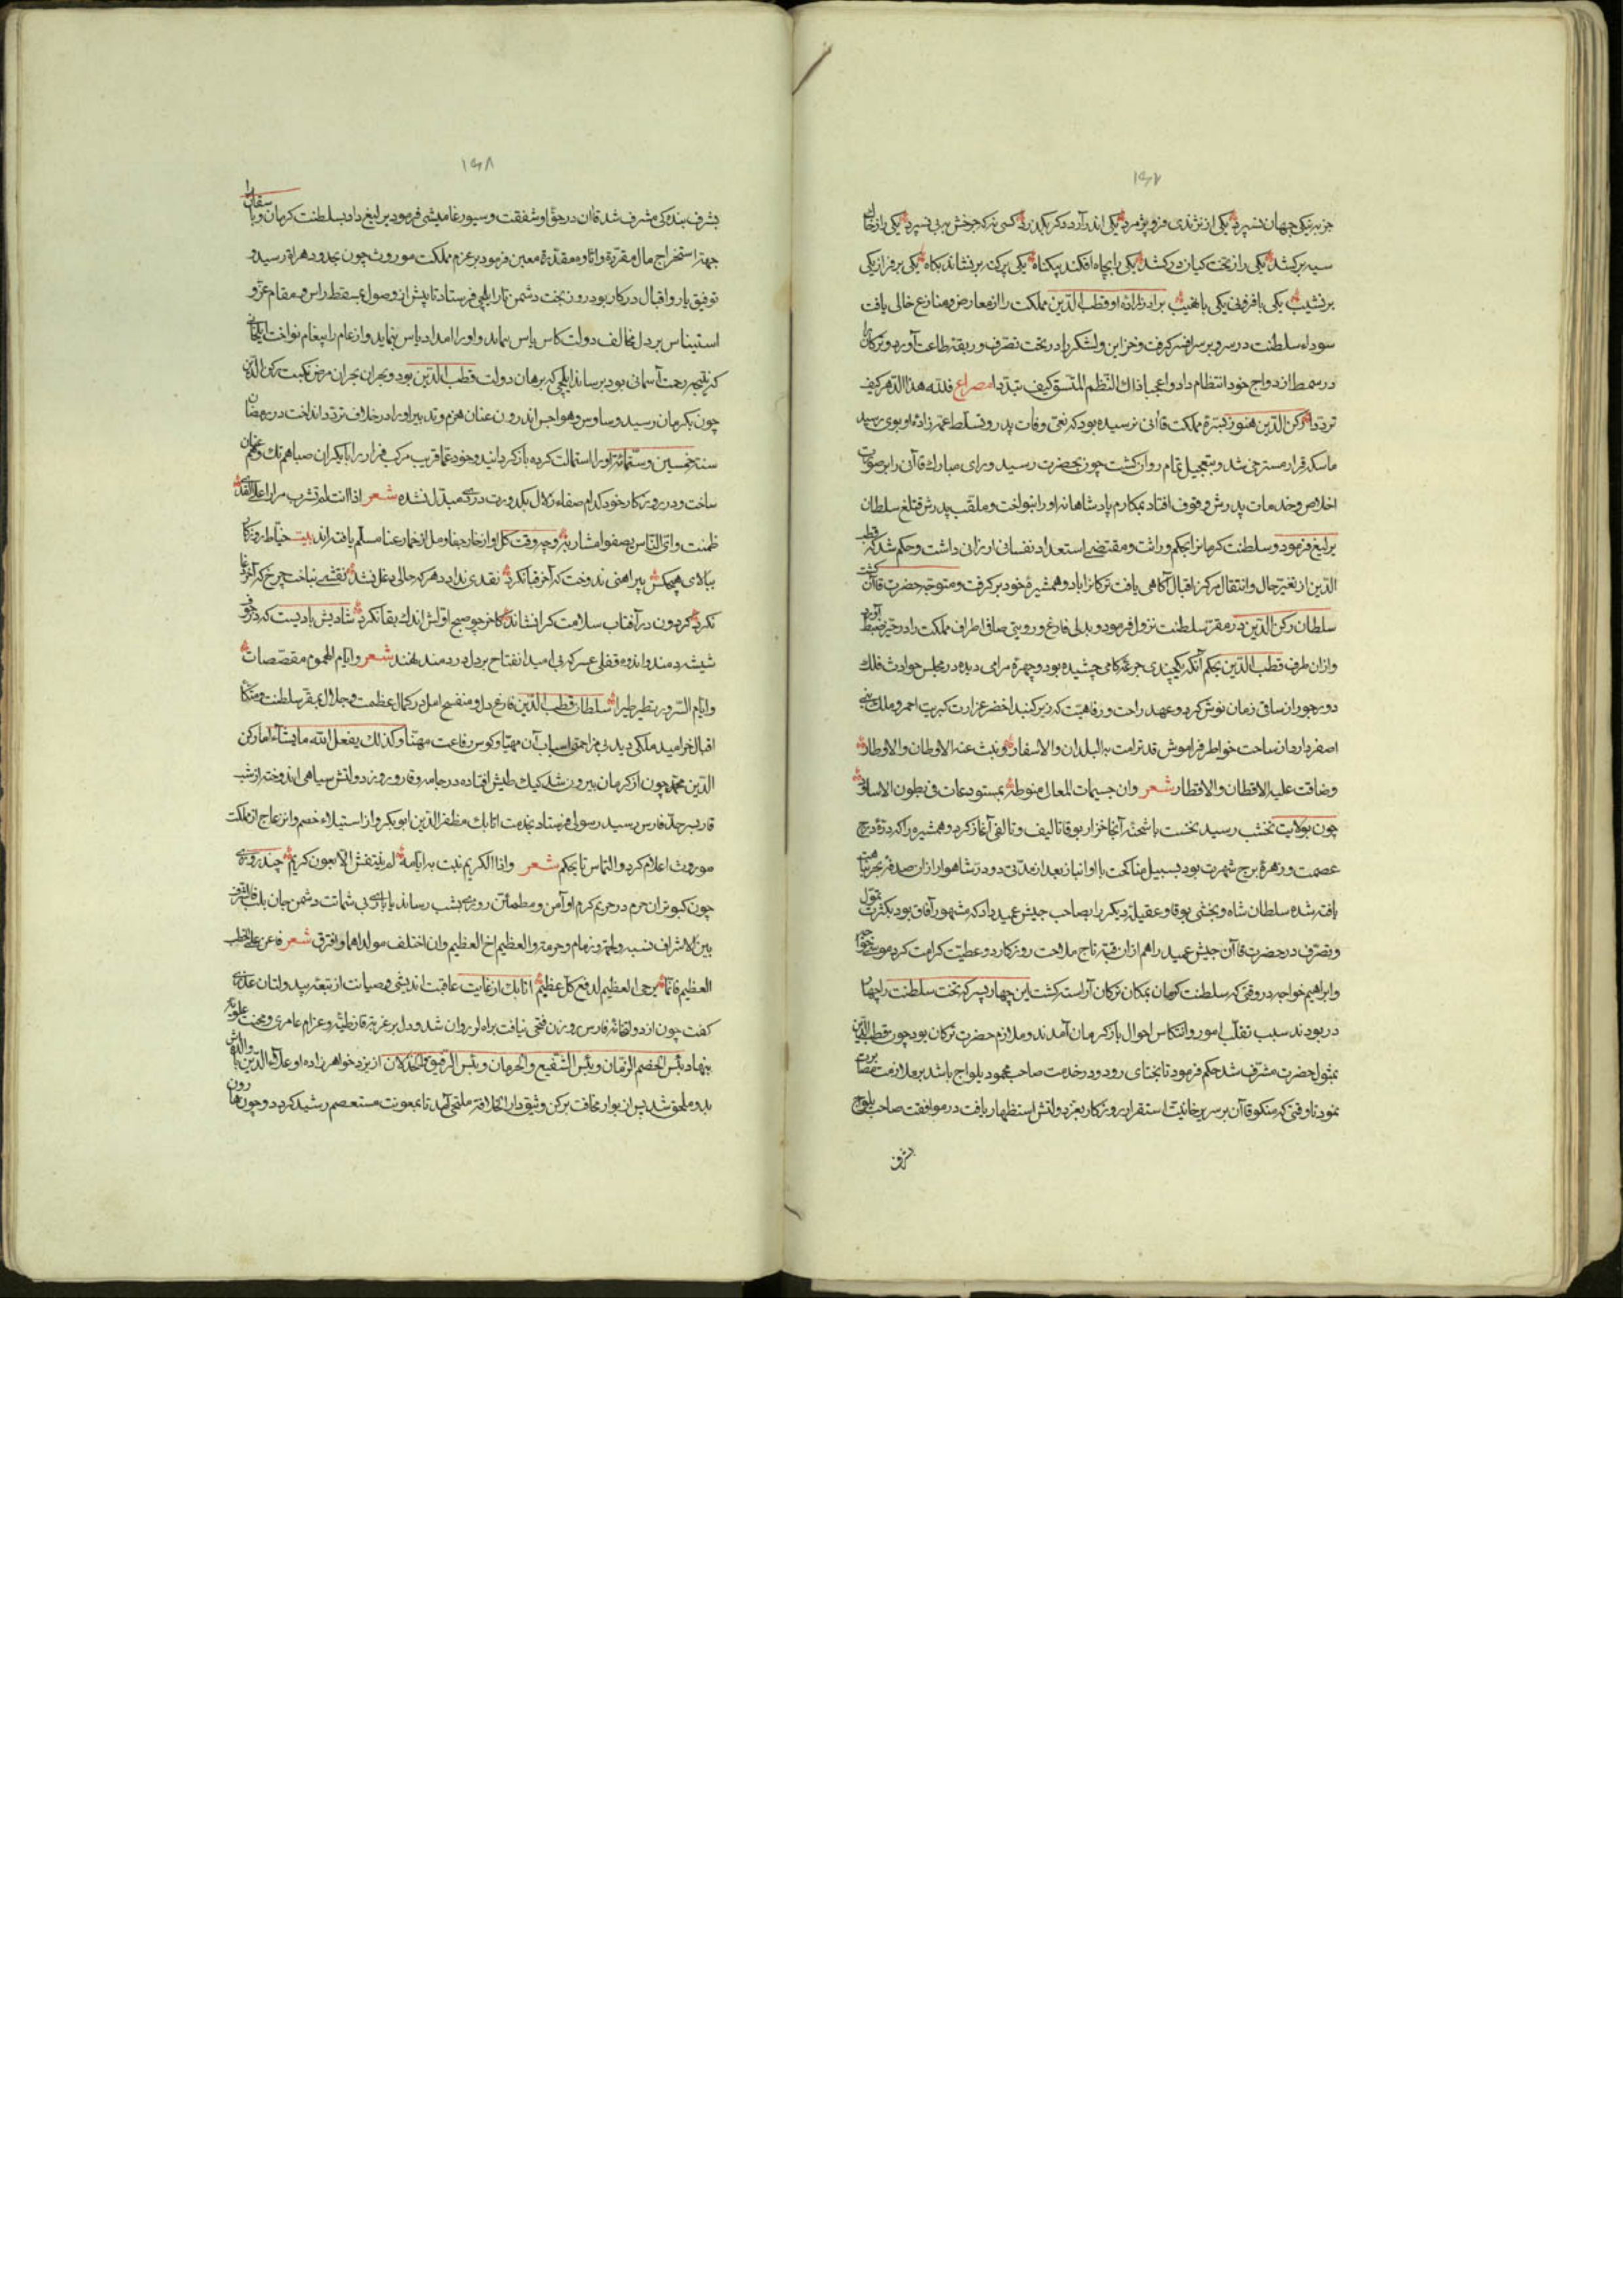 ۱۶۷
جز به نیکی جهان نسپرد یکی از نژندی فرو پژمرد یکی اندر آرد دگر بگذرد کسی نی که چرخش به پی نسپرد یکی را ز خاک
سیه برکشد یکی را ز تخت کیان درکشد یکی را بچاه افکند بیگناه یکی بر کند بر نشاند بگاه یکی بر فراز یکی
بر نشیب یکی با فزونی یکی با نهیب برادرزاده او قطب الدین مملکت را از معارض و منازع خالی یافت
سوداء سلطنت در سر و بر سر افسر گرفت و خزاین و لشکر را در تحت تصرف و ربقه طاعت آورد و ترکان را
در سمط ازدواج خود انتظام داد واعجبا ذاك النظم المتسق كيف تبددا مصراع فلله هذا الدهر كيف
ترددا رکن الدین هنوز بسره مملکت قاانی نرسیده بود که نعی وفات پدر و تسلط عم زاده او بوی رسید
ماسکه قرار مسترخی شد و بتعجیل تمام روان گشت چون بحضرت رسید و رای مبارك قاآن را بر صورت
اخلاص و خدمات پدرش وقوف افتاد بمکارم پادشاهانه او را بنواخت و ملقب پدرش قتلغ سلطان
یرلیغ فرمود و سلطنت کرمانرا بحکم وراثت و مقتضی استعداد نفسانی ارزانی داشت و حکم شد که قطب
الدین از تغیر حال و انتقال مرکز اقبال آگاهی یافت ترکانرا با دو همشیره خود برگرفت و متوجه حضرت قاآن گشت
سلطان رکن الدین در مقر سلطنت نزول فرمود و بدلی فارغ و رویتی صافی اطراف مملکت را در حیز ضبط آورد
و ازان طرف قطب الدین بحکم آنکه یکچندی جرعه کامی چشیده بود و چهره مرامی دیده در مجلس حوادث فلك
دور جور از ساقی زمان نوش کرد و عهد راحت و رفاهیت که زیر گنبد اخضر عزازت کبریت احمر و ملك بنی
اصفر دارد از ساحت خواطر فراموش قد ترامت به البلدان والاسفار ونبت عنه الاوطان والاوطار
وضاقت عليه الاقطان والاقطار شعر وان جسيمات المعالي منوطة بمستودعات في بطون الاساود
چون بولایت نخشب رسید نخست با شحنه آنجا خزار بوقا تالیف و تالفی آغاز کرد و همشیره را که دره درج
عصمت و زهره برج شهرت بود بسبیل مناکحت با او انباز بعد از مدتی دو در شاهوار ازان صدف بحر نباهت
یافته شده سلطان شاه و بخشی بوقا و عقیله دیگر را بصاحب جیش عمید داد که مشهور آفاق بود بکثرت تمول
و تصرف در حضرت قاآن جیش عمید را هم ازان قبه تاج ملاحت روزگار دو عطیت کرامت کرد موسی خواجه
و ابراهیم خواجه در وقتی که سلطنت کرمان بمکان ترکان آراسته گشت این چهار پسر که تخت سلطنت را چهار
در بودند سبب تقلب امور و انتکاس احوال باز کرمان آمدند و ملازم حضرت ترکان بود چون قطب الدین
بمثول حضرت مشرف شد حکم فرمود تا بختای رود و در خدمت صاحب محمود یلواج باشد بر ملازمت
نمود تا وقتی که منکو قاآن بر سریر خانیت استقرار روزگار بفر دولتش استظهار یافت در موافقت صاحب یلواج
بشرف
۱۶۸
بشرف بندگی مشرف شد قاان در حق او شفقت و سیورغامیشی فرمود یرلیغ داد بسلطنت کرمان و با سقاق را
جهة استخراج مال مقرر و اتاوه مقدره معین فرمود بر عزم مملکت موروث چون بحدود هراة رسید و
توفیق یار و اقبال در کار بود روز بخت دشمن تار ایلچی فرستاد تا پیش از وصول بمسقط راس و مقام عز و
استیناس بر دل مخالف دولت کاس یاس پیماید و او را امداد یاس بنماید و از عام را پیغام نواخت ایلخانی
که نتیجه رحمت آسمانی بود برساند ایلچی که برهان دولت قطب الدین بود و بحران بحران مرض نکبت رکن الدین
چون بکرمان رسید وساوس و هواجس اندرون عنان حزم و تدبیر او را در خلاف تردد انداخت در رمضان
سنه خمسین و ستمائه او را استمالت کرده باز گردانید و خود عما قریب مرکب فرار را با بکران صبا هم تك و هم عنان
ساخت و در روزگار خود کدام صفاء زلال بکدورت دردی مبدل نشده شعر اذا انت لم تشرب مرارا على القذى
ظمئت واي الناس تصفو مشاربه و چه وقت گل او از خار جفا و مل از خمار عنا مسلم یافته اند بیت خیاط روزگار
ببالای هیچکس پیراهنی ندوخت که آخر قبا نکرد نقدی نداد دهر که حالی دغل نشد نقشی نباخت چرخ که آخر دغا
نکرد گردون در آفتاب سلامت کرا نشاند کاخر چو صبح اولش اندك بقا نکرد شادیش بادیست که در جوف
شیشه دمند و اندوه قفلی عسر که بی امید انفتاح بر دل دردمند نهند شعر وايام الهموم مقصصات
وايام السرور تطير طيرا سلطان قطب الدین فارغ دل و منفسح امل در کمال عظمت و جلال بمقر سلطنت و متکاء
اقبال خرامید ملکی دید بی مزاحمتی اسباب آن مهیا و کوس رفاعت مهنا وكذلك يفعل الله ما يشاء اما رکن
الدین محمد چون از کرمان بیرون شد کیك طیش افتاده در جامه وقار و روز دولتش سیاهی اندوخته از شب
قار بسرحد فارس رسید رسولی فرستاد بخدمت اتابك مظفر الدین ابوبکر و از استیلاء خصم و انزعاج از ملکت
موروث اعلام کرد و التماس تا بحکم شعر واذا الكريم نبت به ايامه لم ينتعش الا بعون كريم چند روزی
چون کبوتران حرم در حریم کرم او آمن و مطمئن روزی بشب رساند یا پایی بی شماتت دشمن جان بلب فالشرف
بين الاشراف نسب ولحمة وذمام وحرمة والعظيم اخ العظيم وان اختلف مولداهما وافترق شعر فاعن على الخطب
العظيم فانما يرجى العظيم لدفع كل عظيم اتابك از غایت عاقبت اندیشی و صیانت از تبعه بید و لتان عذری
گفت چون از دولتخانه فارس روزن فتحی نیافت براه لر روان شد و دل بر غربه قاذطیه و عزام عامری و محنت علویه
بنهاد بئس الخصم الزمان وبئس الشفيع والحرمان وبئس الرفيق والخذلان از یزد خواهرزاده او علاء الدین با والده اش
بدو ملحق شد پس از بوار مخافت برکن وثیق دار الخلافة ملتجی آمد تا بمعونت مستعصم رشید گردد و چون ها رون